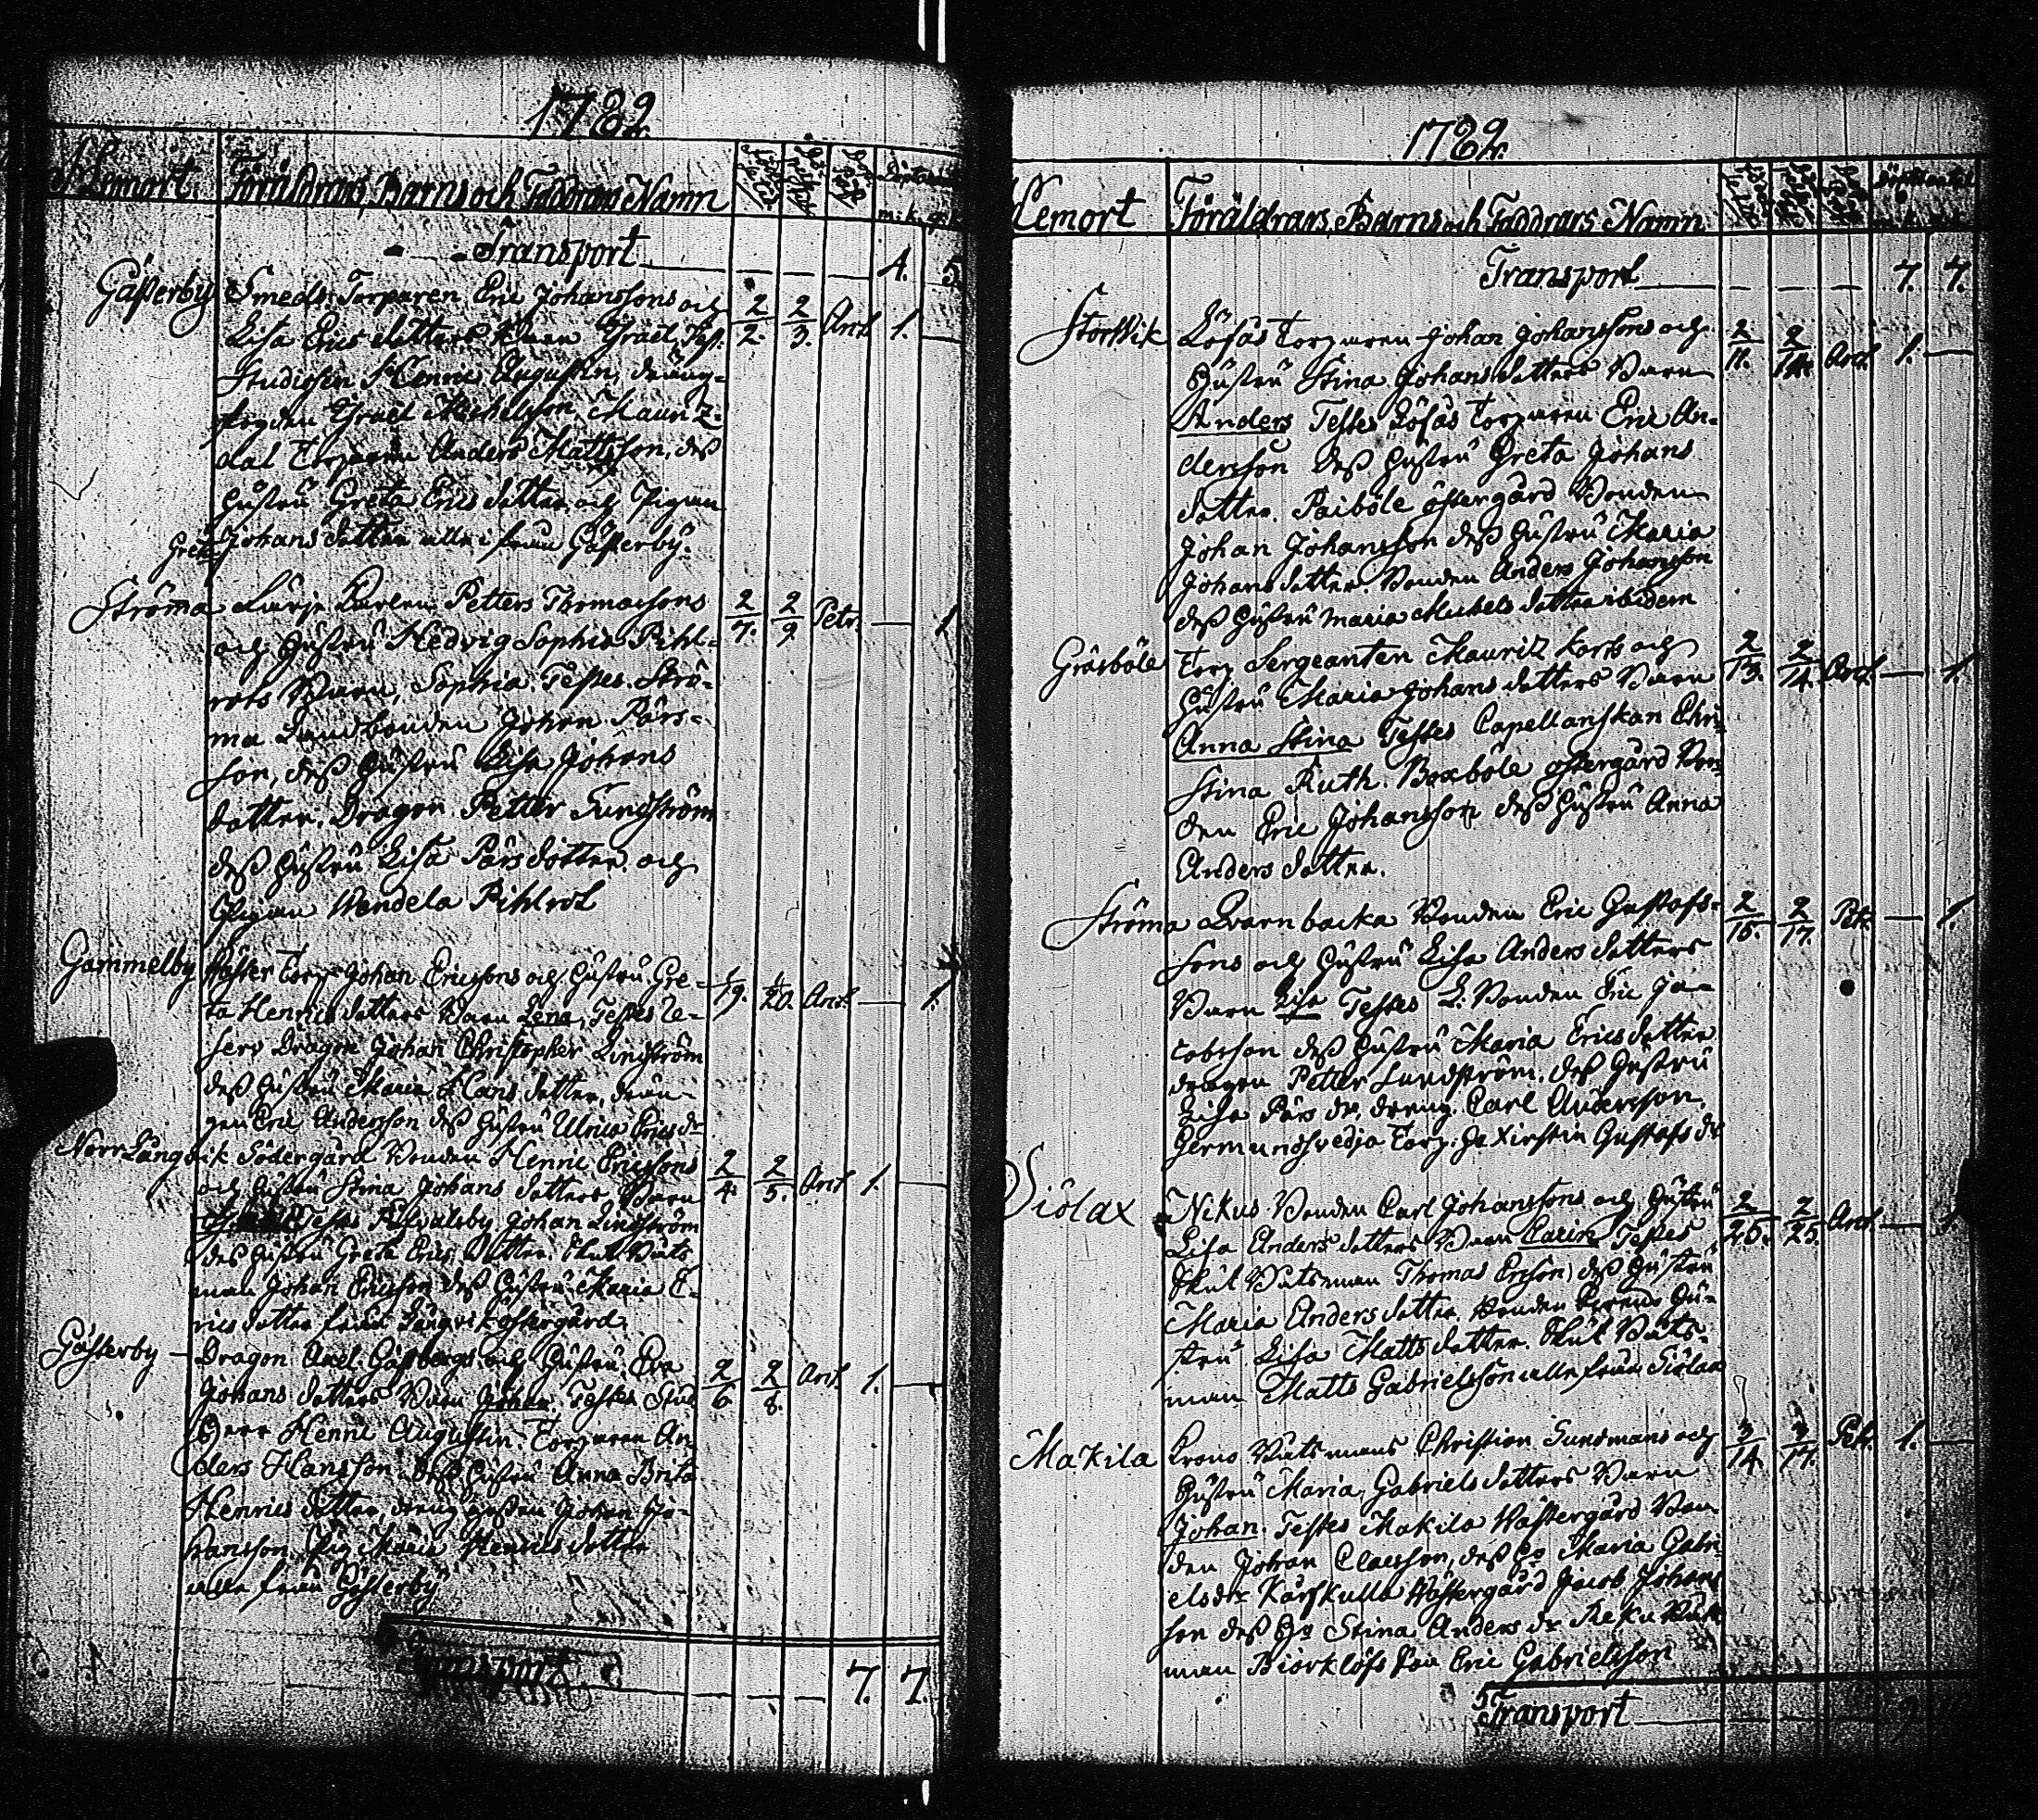 1782
Hemort Föräldrars, Barns och Faddrars Namn m.k. q.k.
Transport 4. 5.
Gästerby Smeds Torparen Eric Johanssons och 2/2. 2/3. Ant 1. —
Lisa Erics dotters Barn Israel, Test.
Studiosen Henric Augustin, dräng-
fogden Israel Michelsson, Mauritz-
dal Torparen Anders Mattsson, dess
hustru Greta Erics dotter, och Pigan
Greta Johans dotter alla ifrån Gästerby.
Ströma Färje Karlen Petters Thomassons 2/7. 2/9. Petr. — 1
och hustru Hedvig Sophia Pihl-
rots Barn, Sophia. Testes. Strö-
ma Landbonden Johan Pärs-
son, dess hustru Lisa Johans
dotter. Dragon Petter Sundström
dess hustru Lisa Pärsdotter och
Pigan Wendela Pihlrot
Gammelby Wäster Torp. Johan Ericssons och hustru Gre- 1/19. 1/20. Ant. — 1.
ta Henrics dotters Barn Lena, Testes Re-
serv Dragon Johan Christopher Lindström
dess hustru Maria Hans dotter, drän-
gen Eric Andersson dess hustru Ulrica Erics dr
Norr Långvik Södergård Bonden Henric Ericssons 2/4. 2/5. Ant 1. —
och hustru Stina Johans dotters Barn
Testes Johan Lindström
des hustru Greta Erics dotter. Skut Båts
man Johan Ericsson dess hustru Maria E-
rics dotter från Långvik östergård.
Gästerby — Dragon Axel Gästbergs och hustru Eva 2/6. 2/8. Ant 1. —
Johans dotters Barn Johan, Testes Stud
Herr Henric Augustin. Torparen An-
ders Hansson dess hustru Anna Brita
Henrics dotter, dräng gossen Johan Jo-
hansson Pig Maria Henrics dotter
alla från Gästerby
Transport 7. 7.
1782.
Hemort Föräldrars, Barns och Faddrars Namn
Transport 7. 7.
Storwik Löfås Torparen Johan Johanssons och 2/11. 2/12. Ant. 1. —
Hustru Stina Johans dotters Barn
Anders Testes Löfås Torparen Eric An-
dersson dess hustru Greta Johans
dotter. Paiböle östergård Bonden
Johan Johansson dess hustru Maria
Johans dotter. Bonden Anders Johansson
dess hustru Maria Michels dotter ibidem
Gräsböle Torp Sergeanten Mauritz Korks och 2/13. 2/14. Ant. — 1.
Hustru Maria Johans dotters Barn
Anna Stina Testes Capellanskan Chri-
stina Ruth. Boxböle östergård Bon-
den Eric Johansson dess hustru Anna
Anders dotter.
Ströma Qvarnbacka Bonden Eric Gustafs- 2/15. 2/17. Petr. — 1.
sons och hustru Lisa Anders dotters
Barn Lisa Testes L: Bonden Eric Ja-
cobsson dess hustru Maria Erics dotter
dragon Petter Sundström. dess hustru
Lisa Pärs dr. dräng. Carl Andersson,
Germundsvedja Torp: Kirstin Gustafs dr
Siölax Nikus Bonden Carl Johanssons och hustru 2/25. 2/25. Ant — 1
Lisa Anders dotters Barn Carin Testes
Skut Båtsman Thomas Ericson, dess hustru
Maria Anders dotter. Bonden hu-
stru Lisa Matts dotter. Skut Båts-
man Matts Gabrielsson alla från Siölax
Makila Krono Båtsmans Christian Sundmans och 3/14. 3/17. Petr. 1. —
Hustru Maria Gabriels dotters Barn
Johan. Testes Makila Wästergård Bon-
den Johan Claesson, dess Ho Maria Gabri-
els dr Kärskulla Wästergård Jacob Johans
son dess Ho Stina Anders dr Båts
man Biorklöfs Eric Gabrielsson
Transport